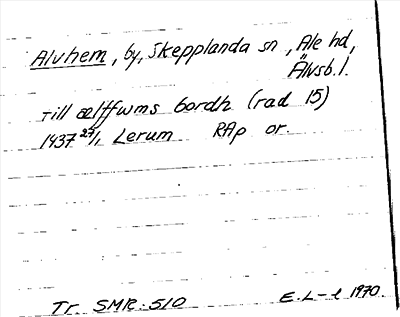 Alvhem, by, Skepplanda sn, Ale hd,
Älvsb. l.
till ælffwms bordh (rad 15)
1437 27/1 Lerum RAp or.
Tr. SMR: 510 E. L-l 1970